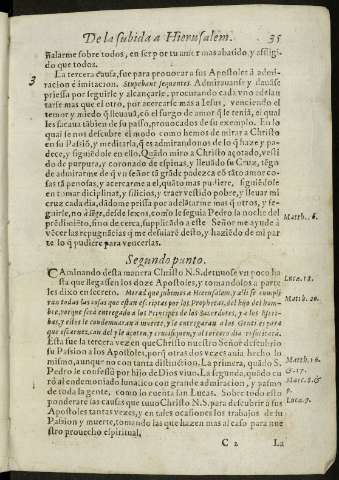 De la subida a Hierusalem. 35
ñalarme sobre todos, en ser por tu amor mas abatido, y affligi-
do que todos.
3 La tercera causa, fue para prouocar a sus Apostoles à admi-
racion è imitacion. Stupebant sequentes. Admirauanse y dauāse
priessa por seguirle y alcançarle, procurando cada vno adelan
tarse mas que el otro, por acercarse mas a Iesus, venciendo el
temor y miedo q̃ lleuauā, cō el fuego de amor q̃ le teniā, el qual
les sacaua tābien de su passo, prouocados de su exemplo. En lo
qual se nos descubre el modo como hemos de mirar a Christo
en su Passiō, y meditarla, q̃ es admirandonos de lo q̃ haze y pa-
dece, y siguiēdole en ello. Quādo miro a Christo açotado, vesti
do de purpura, y coronado de espinas, y lleuādo su Cruz, tēgo
de admirarme de q̃ vn señor tā grāde padezca cō tāto amor co-
sas tā penosas, y acercarme a el, quāto mas pudiere, siguiēdole
en tomar diciplinas, y silicios, y traer vestido pobre, y lleuar mi
cruz cada dia, dādome priessa por adelātarme mas q̃ otros, y se-
guirle, no à lexe, desde lexos, como le seguia Pedro la noche del Matth. 6.
prēdimiēto, sino de cerca, supplicādo a este Señor me ayude à
vēcer las repugnācias q̃ me desuiarē desto, y haziēdo de mi par
te lo q̃ pudiere para vencerlas.
Segundo punto.
CAminando desta manera Christo N. S. detuuose vn poco ha Luca. 18.
sta que llegassen los doze Apostoles, y tomandolos a parte
les dixo en secreto. Mirad que subimos a Hierusalem, y alli se cumpli Matth. 20.
ran todas las cosas que estan escriptas por los Prophetas, del hijo del hom-
bre, porque sera entregado a los Principes de los Sacerdotes, y a los Escri-
bas, y ellos le condenaran a muerte, y le entregaran a los Gentiles para
que escarnezcan del y açoten, y crucifiquen, y al tercero dia resucitara.
Esta fue la tercera vez que Christo nuestro Señor descubrio
su Passion a los Apostoles, porq̃ otras dos vezes auia hecho lo
mismo, aunque no con tanta distinction. La primera, quādo S. Matth. 16.
Pedro le confessò por hijo de Dios viuo. La segunda, quādo cu & 17.
rò al endemoniado lunatico con grande admiracion, y pasmo Marc. 8. &
de toda la gente, como lo cuenta san Lucas. Sobre todo esto 9.
ponderare las causas que tuuo Christo N. S. para descubrir à sus Luca. 9.
Apostoles tantas vezes, y en tales ocasiones los trabajos de su
Passion y muerte, tomando las que hazen mas al caso para nue
stro prouecho espiritual.
C 2 La